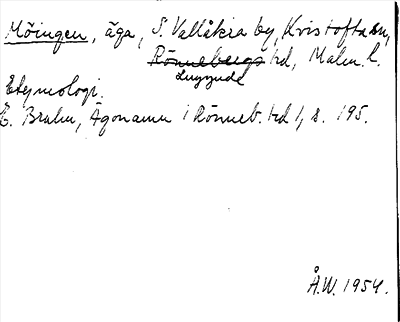 Möingen, äga, S. Vallåkra by, Kristofta sn,
Rönnebergs hd, Malm. l.
Luggude
Etymologi.
E. Brahm, Ägonamn i Rönneb. hd 1, s. 195.
Å.W. 1954.